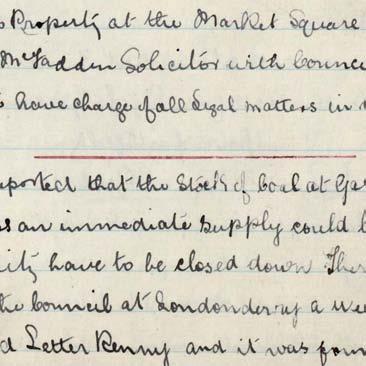 Property at the Market Square
McFadden Solicitor with Counci
have charge of all Legal matters in
ported that the Stock of Coal at Gas
an immediate supply could b
have to be closed down Ther
the Council at Londonderry a wee
d Letter Kenny and it was foun